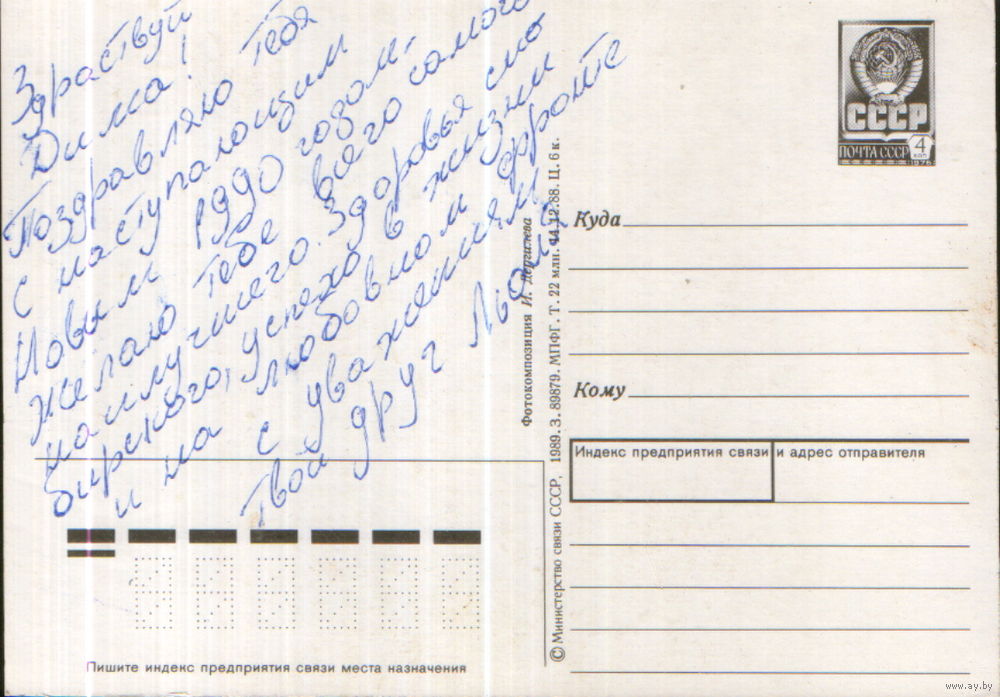 Здраствуй
Дима!
Поздравляю тебя
с наступающим
Новым 1990 годом,
Желаю тебе всего самого
наилучшего. Здоровья сибирского, успехов в жизни
и на любовном фронте
с уважением
Твой друг
СССР
ПОЧТА СССР
4
КОП
1976
Куда
Кому
Индекс предприятия связи и адрес отправителя
Фотокомпозиция И. Дергилева
© Министерство связи СССР, 1989. З. 89879. МПФГ. Т. 22 млн. 14.12.88. Ц. 6 к.
Пишите индекс предприятия связи места назначения
www.ay.by